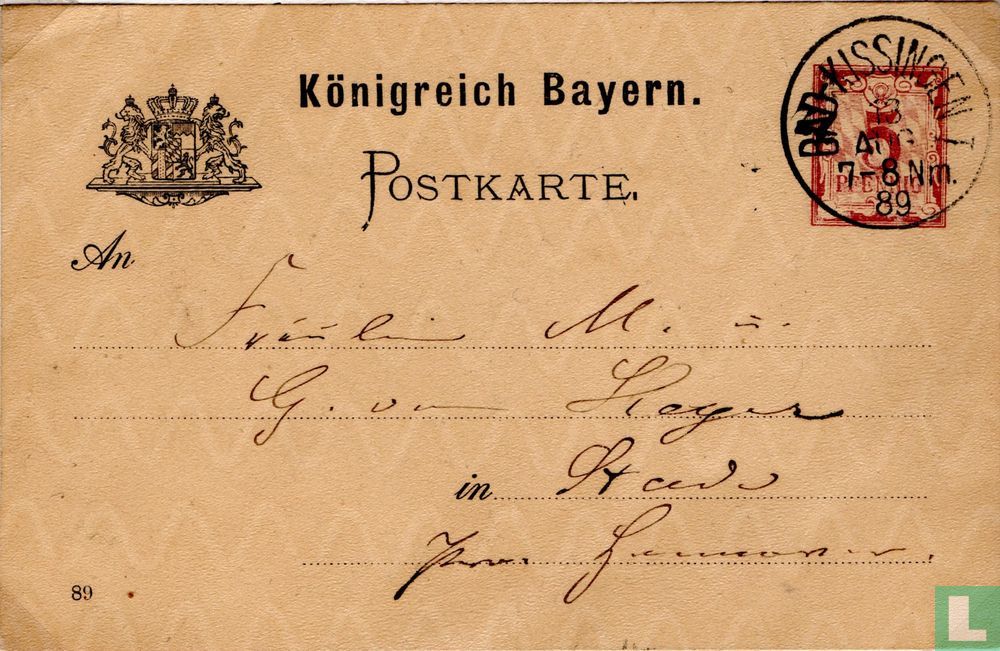 Königreich Bayern.
POSTKARTE.
BAD-KISSINGEN I
13
AUG
7-8 Nm.
89
5
PFENNIG
An
Fräulein M. u.
G. von
in Stade
Prov. Hannover.
89
L